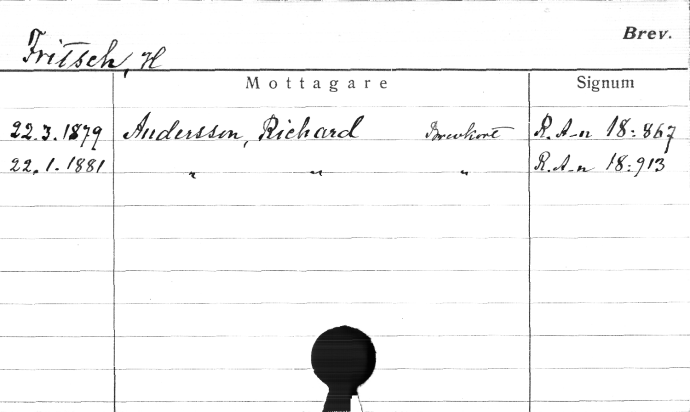 Brev.
Fritsch, H
Mottagare Signum
22.3.1879 Andersson, Richard Brevkort R. A-n 18:867
22.1.1881 " " " R. A-n 18:913